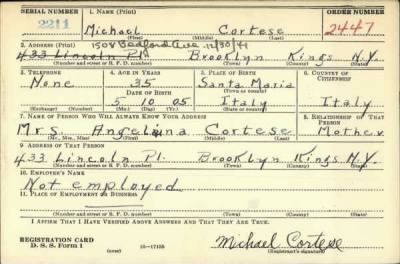 SERIAL NUMBER 1. NAME (Print) ORDER NUMBER
2211 Michael Cortese 2447
(First) (Middle) (Last)
2. ADDRESS (Print) 1508 Bedford Ave 12/30/41
433 Lincoln Pl. Brooklyn Kings N.Y.
(Number and street or R. F. D. number) (Town) (County) (State)
3. TELEPHONE 4. AGE IN YEARS 5. PLACE OF BIRTH 6. COUNTRY OF CITIZENSHIP
None 35 Santa Maria
DATE OF BIRTH (Town or county)
5 10 05 Italy Italy
(Exchange) (Number) (Mo.) (Day) (Yr.) (State or country)
7. NAME OF PERSON WHO WILL ALWAYS KNOW YOUR ADDRESS 8. RELATIONSHIP OF THAT PERSON
Mrs. Angelina Cortese Mother
(Mr., Mrs., Miss) (First) (Middle) (Last)
9. ADDRESS OF THAT PERSON
433 Lincoln Pl. Brooklyn Kings N.Y.
(Number and street or R. F. D. number) (Town) (County) (State)
10. EMPLOYER'S NAME
Not employed
11. PLACE OF EMPLOYMENT OR BUSINESS
(Number and street or R. F. D. number) (Town) (County) (State)
I AFFIRM THAT I HAVE VERIFIED ABOVE ANSWERS AND THAT THEY ARE TRUE.
REGISTRATION CARD
D. S. S. Form 1 (over) 16—17105 Michael Cortese
(Registrant's signature)